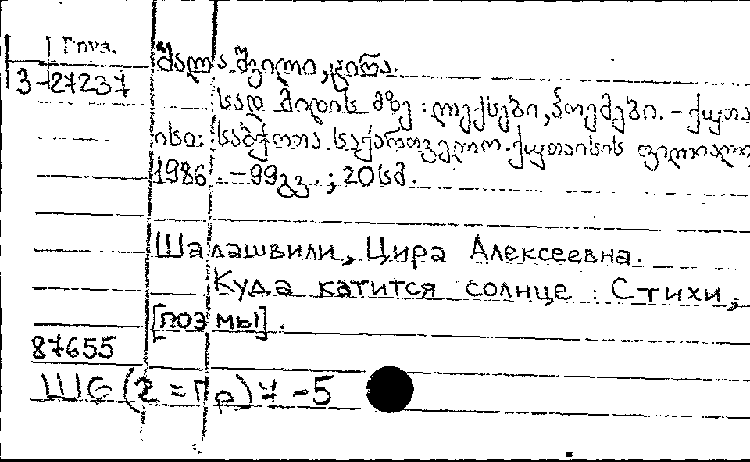 Груз.
3-27237
შალაშვილი, ცირა.
სად მიდის მზე : ლექსები, პოემები. - ქუთა
ისი: საბჭოთა საქართველო. ქუთაისის ფილიალი
1986. - 99გვ. ; 20სმ.
Шалашвили, Цира Алексеевна.
Куда катится солнце : Стихи,
[поэмы].
87655
Ш6(2=Гр)7-5